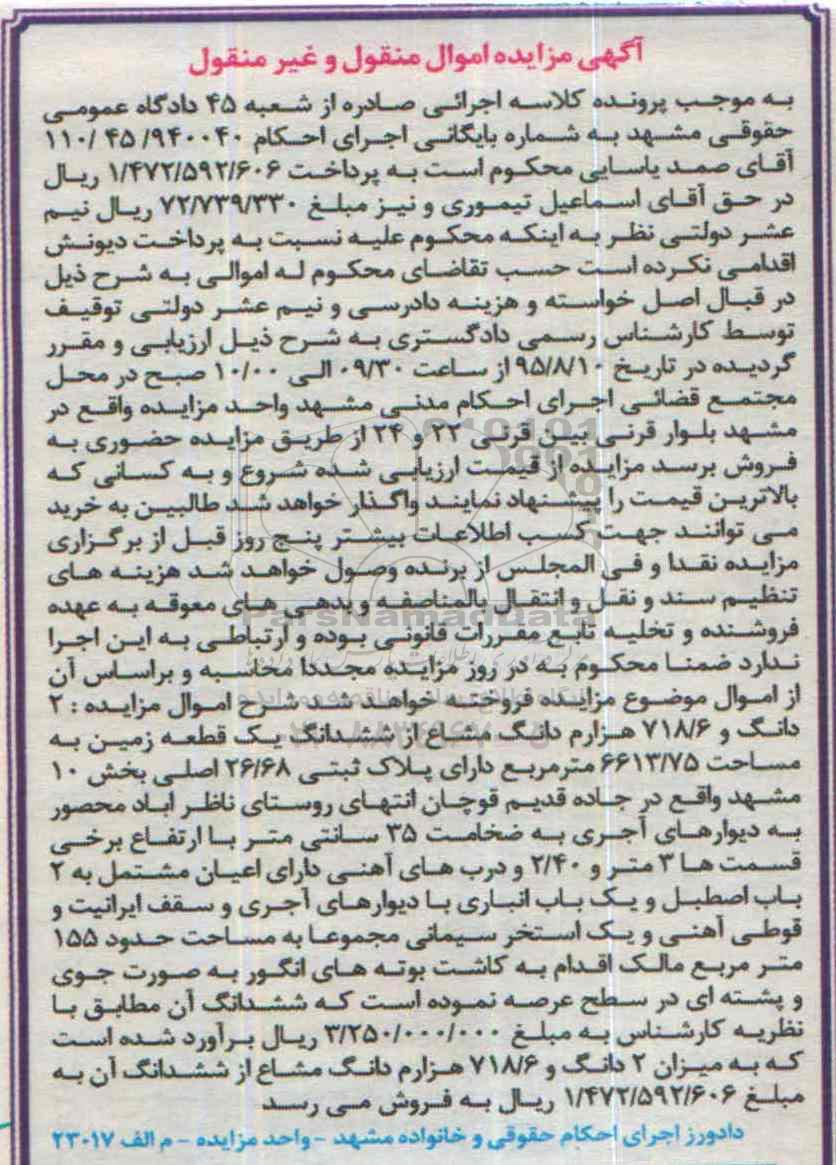 آگهی مزایده اموال منقول و غیر منقول
به موجب پرونده کلاسه اجرائی صادره از شعبه ۴۵ دادگاه عمومی
حقوقی مشهد به شماره بایگانی اجرای احکام ۹۴۰۰۴۰/ ۴۵ /۱۱۰
آقای صمد یاسایی محکوم است به پرداخت ۱/۴۷۲/۵۹۲/۶۰۶ ریال
در حق آقای اسماعیل تیموری و نیز مبلغ ۷۲/۷۳۹/۳۳۰ ریال نیم
عشر دولتی نظر به اینکه محکوم علیه نسبت به پرداخت دیونش
اقدامی نکرده است حسب تقاضای محکوم له اموالی به شرح ذیل
در قبال اصل خواسته و هزینه دادرسی و نیم عشر دولتی توقیف
توسط کارشناس رسمی دادگستری به شرح ذیل ارزیابی و مقرر
گردیده در تاریخ ۹۵/۸/۱۰ از ساعت ۰۹/۳۰ الی ۱۰/۰۰ صبح در محل
مجتمع قضائی اجرای احکام مدنی مشهد واحد مزایده واقع در
مشهد بلوار قرنی بین قرنی ۲۲ و ۲۴ از طریق مزایده حضوری به
فروش برسد مزایده از قیمت ارزیابی شده شروع و به کسانی که
بالاترین قیمت را پیشنهاد نمایند واگذار خواهد شد طالبین به خرید
می توانند جهت کسب اطلاعات بیشتر پنج روز قبل از برگزاری
مزایده نقدا و فی المجلس از برنده وصول خواهد شد هزینه های
تنظیم سند و نقل و انتقال بالمناصفه و بدهی های معوقه به عهده
فروشنده و تخلیه تابع مقررات قانونی بوده و ارتباطی به این اجرا
ندارد ضمنا محکوم به در روز مزایده مجددا محاسبه و براساس آن
از اموال موضوع مزایده فروخته خواهد شد شرح اموال مزایده : ۲
دانگ و ۷۱۸/۶ هزارم دانگ مشاع از ششدانگ یک قطعه زمین به
مساحت ۶۶۱۳/۷۵ مترمربع دارای پلاک ثبتی ۲۶/۶۸ اصلی بخش ۱۰
مشهد واقع در جاده قدیم قوچان انتهای روستای ناظر اباد محصور
به دیوارهای آجری به ضخامت ۳۵ سانتی متر با ارتفاع برخی
قسمت ها ۳ متر و ۲/۴۰ و درب های آهنی دارای اعیان مشتمل به ۲
باب اصطبل و یک باب انباری با دیوارهای آجری و سقف ایرانیت و
قوطی آهنی و یک استخر سیمانی مجموعا به مساحت حدود ۱۵۵
متر مربع مالک اقدام به کاشت بوته های انگور به صورت جوی
و پشته ای در سطح عرصه نموده است که ششدانگ آن مطابق با
نظریه کارشناس به مبلغ ۳/۲۵۰/۰۰۰/۰۰۰ ریال برآورد شده است
که به میزان ۲ دانگ و ۷۱۸/۶ هزارم دانگ مشاع از ششدانگ آن به
مبلغ ۱/۴۷۲/۵۹۲/۶۰۶ ریال به فروش می رسد
دادورز اجرای احکام حقوقی و خانواده مشهد -واحد مزایده - م الف ۲۳۰۱۷
ParsNamadData